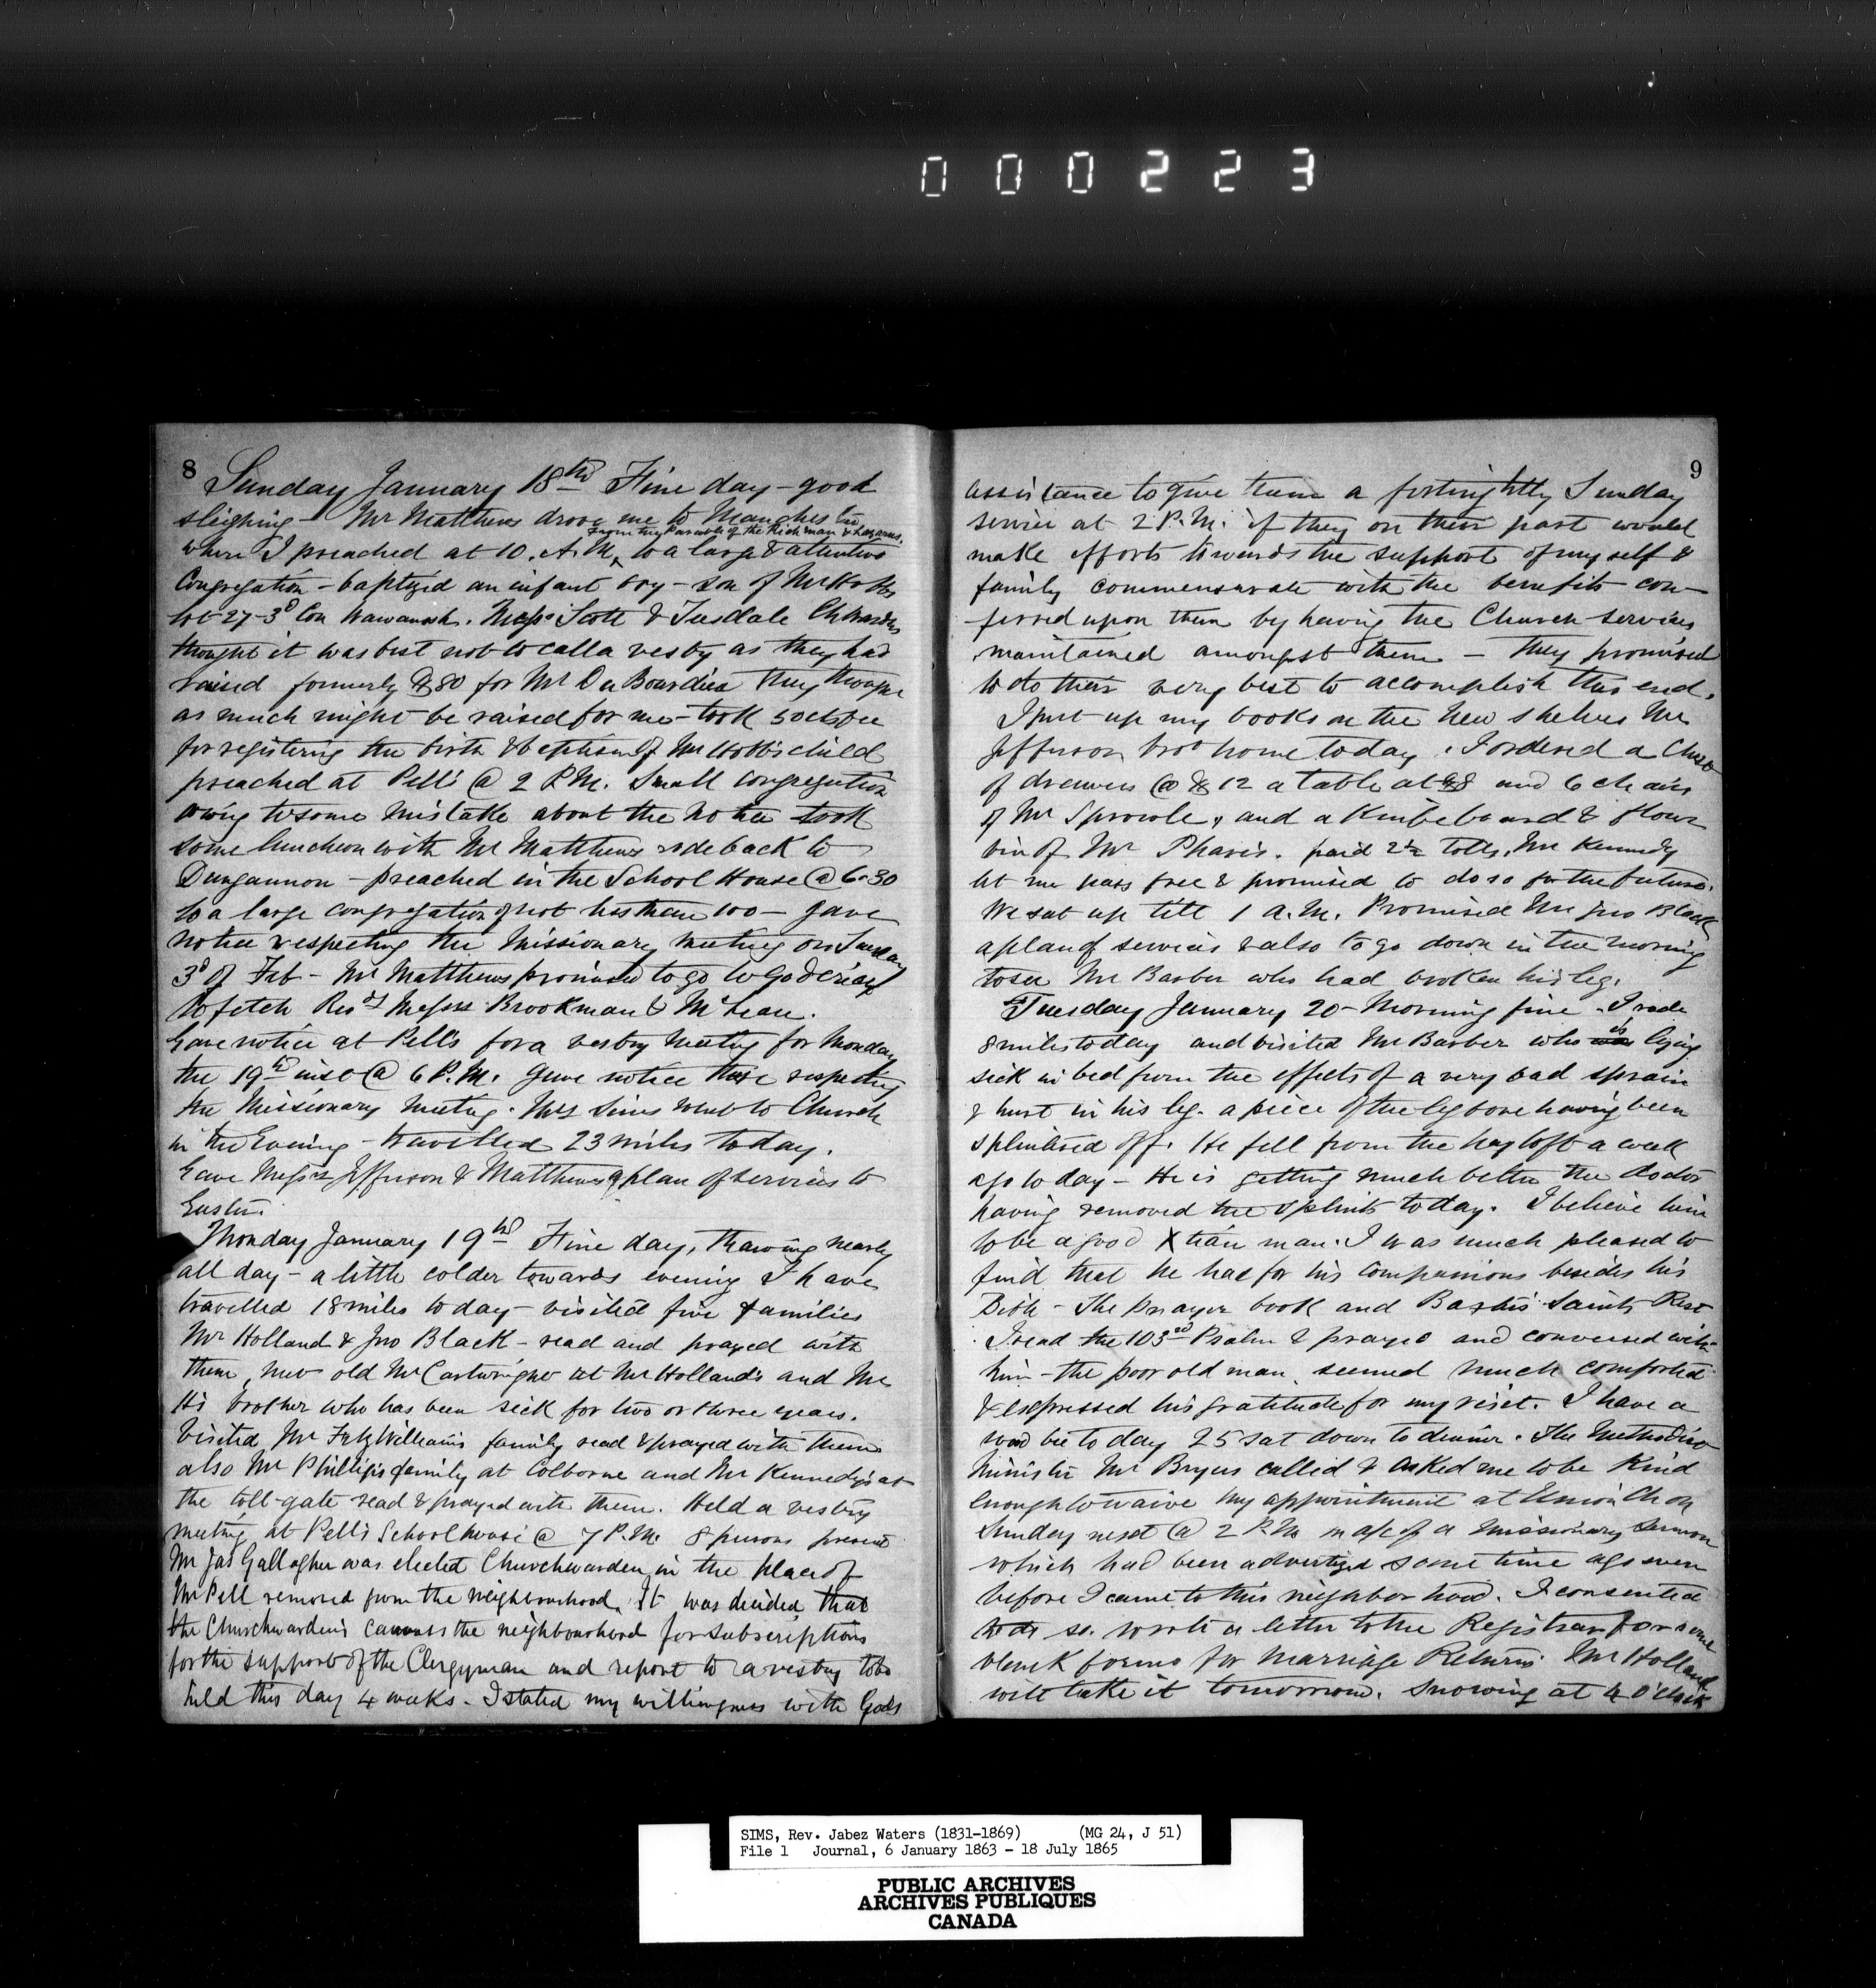 000223
8
Sunday January 18th Fine day - good
sleighing - Mr Matthews drove me to Manchester
from the Parable of the Rich man & Lazarus.
where I preached at 10. A.M. to a large & attentive
Congregation - baptized an infant boy - son of Mr Hobbs
lot 27 - 3d Con Wawanosh. Messrs Scott & Tisdale ChWardens
thought it was best not to call a vestry as they had
raised formerly $80 for Mr Du Bourdieu they thought
as much might be raised for me - took 50cts fee
for registering the birth & baptism of Mr Hobb's child
preached at Pell's @ 2 P.M. Small congregation
owing to some mistake about the notice took
some luncheon with Mr Matthews rode back to
Dungannon - preached in the School House @ 6.30
to a large congregation of not less than 100 - gave
notice respecting the Missionary meeting on Tuesday
3d of Feb - Mr Matthews promised to go to Goderich
to fetch Revds Messrs Brookman & McLean.
Gave notice at Pell's for a vestry Meeting for Monday
the 19th inst @ 6 P.M. gave notice there respecting
the Missionary Meeting. Mrs Sims went to Church
in the Evening - travelled 23 miles today.
Gave Messrs Jefferson & Matthews a plan of services to
Easter.
Monday January 19th Fine day, thawing nearly
all day - a little colder towards evening I have
travelled 18 miles today - visited five families
Mr Holland & Jno Black - read and prayed with
them, met old Mr Cartwright at Mr Holland's and Mr
H's brother who has been sick for two or three years.
Visited Mr FitzWilliam's family read & prayed with them
also Mr Phillip's family at Colborne and Mr Kennedy's at
the toll-gate read & prayed with them. Held a vestry
meeting at Pell's Schoolhouse @ 7 P.M. 8 persons present
Mr Jas Gallagher was elected Churchwarden in the place of
Mr Pell removed from the neighbourhood. It was decided that
the Churchwardens canvass the neighbourhood for subscriptions
for the support of the Clergyman and report to a vestry to be
held this day 4 weeks - I stated my willingness with God's
9
assistance to give them a fortnightly Sunday
service at 2 P.M. if they on their part would
make efforts towards the support of myself &
family commensurate with the benefits con-
ferred upon them by having the Church services
maintained amongst them - They promised
to do their very best to accomplish this end.
I put up my books on the new shelves Mr
Jefferson brot home today. I ordered a Chest
of drawers @ $12 a table at $8 and 6 chairs
of Mr Sproole, and a Kneebeboard & flour
bin of Mr Pharis. paid 2½ tolls, Mr Kennedy
let me pass free & promised to do so for the future.
We sat up till 1 A.M. Promised Mr Jno Black
a plan of services & also to go down in the morning
to see Mr Barber who had broken his leg.
Tuesday January 20 - Morning fine - I rode
8 miles today and visited Mr Barber who was is lying
sick in bed from the effects of a very bad sprain
& hurt in his leg - a piece of the leg bone having been
splintered off. He fell from the hay loft a week
ago to day - He is getting much better the doctor
having removed the splints today. I believe him
to be a good Xtian man. I was much pleased to
find that he had for his companions besides his
Bible - The prayer book and Baxter's Saints Rest
I read the 103rd Psalm & prayed and conversed with
him - the poor old man seemed much comforted
& expressed his gratitude for my visit. I have a
wood bee to day 25 sat down to dinner. The Methodist
Minister Mr Bryers called & asked me to be kind
enough to waive my appointment at Union Ch on
Sunday next @ 2 P.M. on a/c of a missionary sermon
which had been advertized some time ago even
before I came to this neighborhood. I consented
to do so. wrote a letter to the Registrar for some
blank forms for Marriage Returns Mr Holland
will take it tomorrow. Snowing at 4 O'clock
SIMS, Rev. Jabez Waters (1831-1869) (MG 24, J 51)
File 1 Journal, 6 January 1863 - 18 July 1865
PUBLIC ARCHIVES
ARCHIVES PUBLIQUES
CANADA